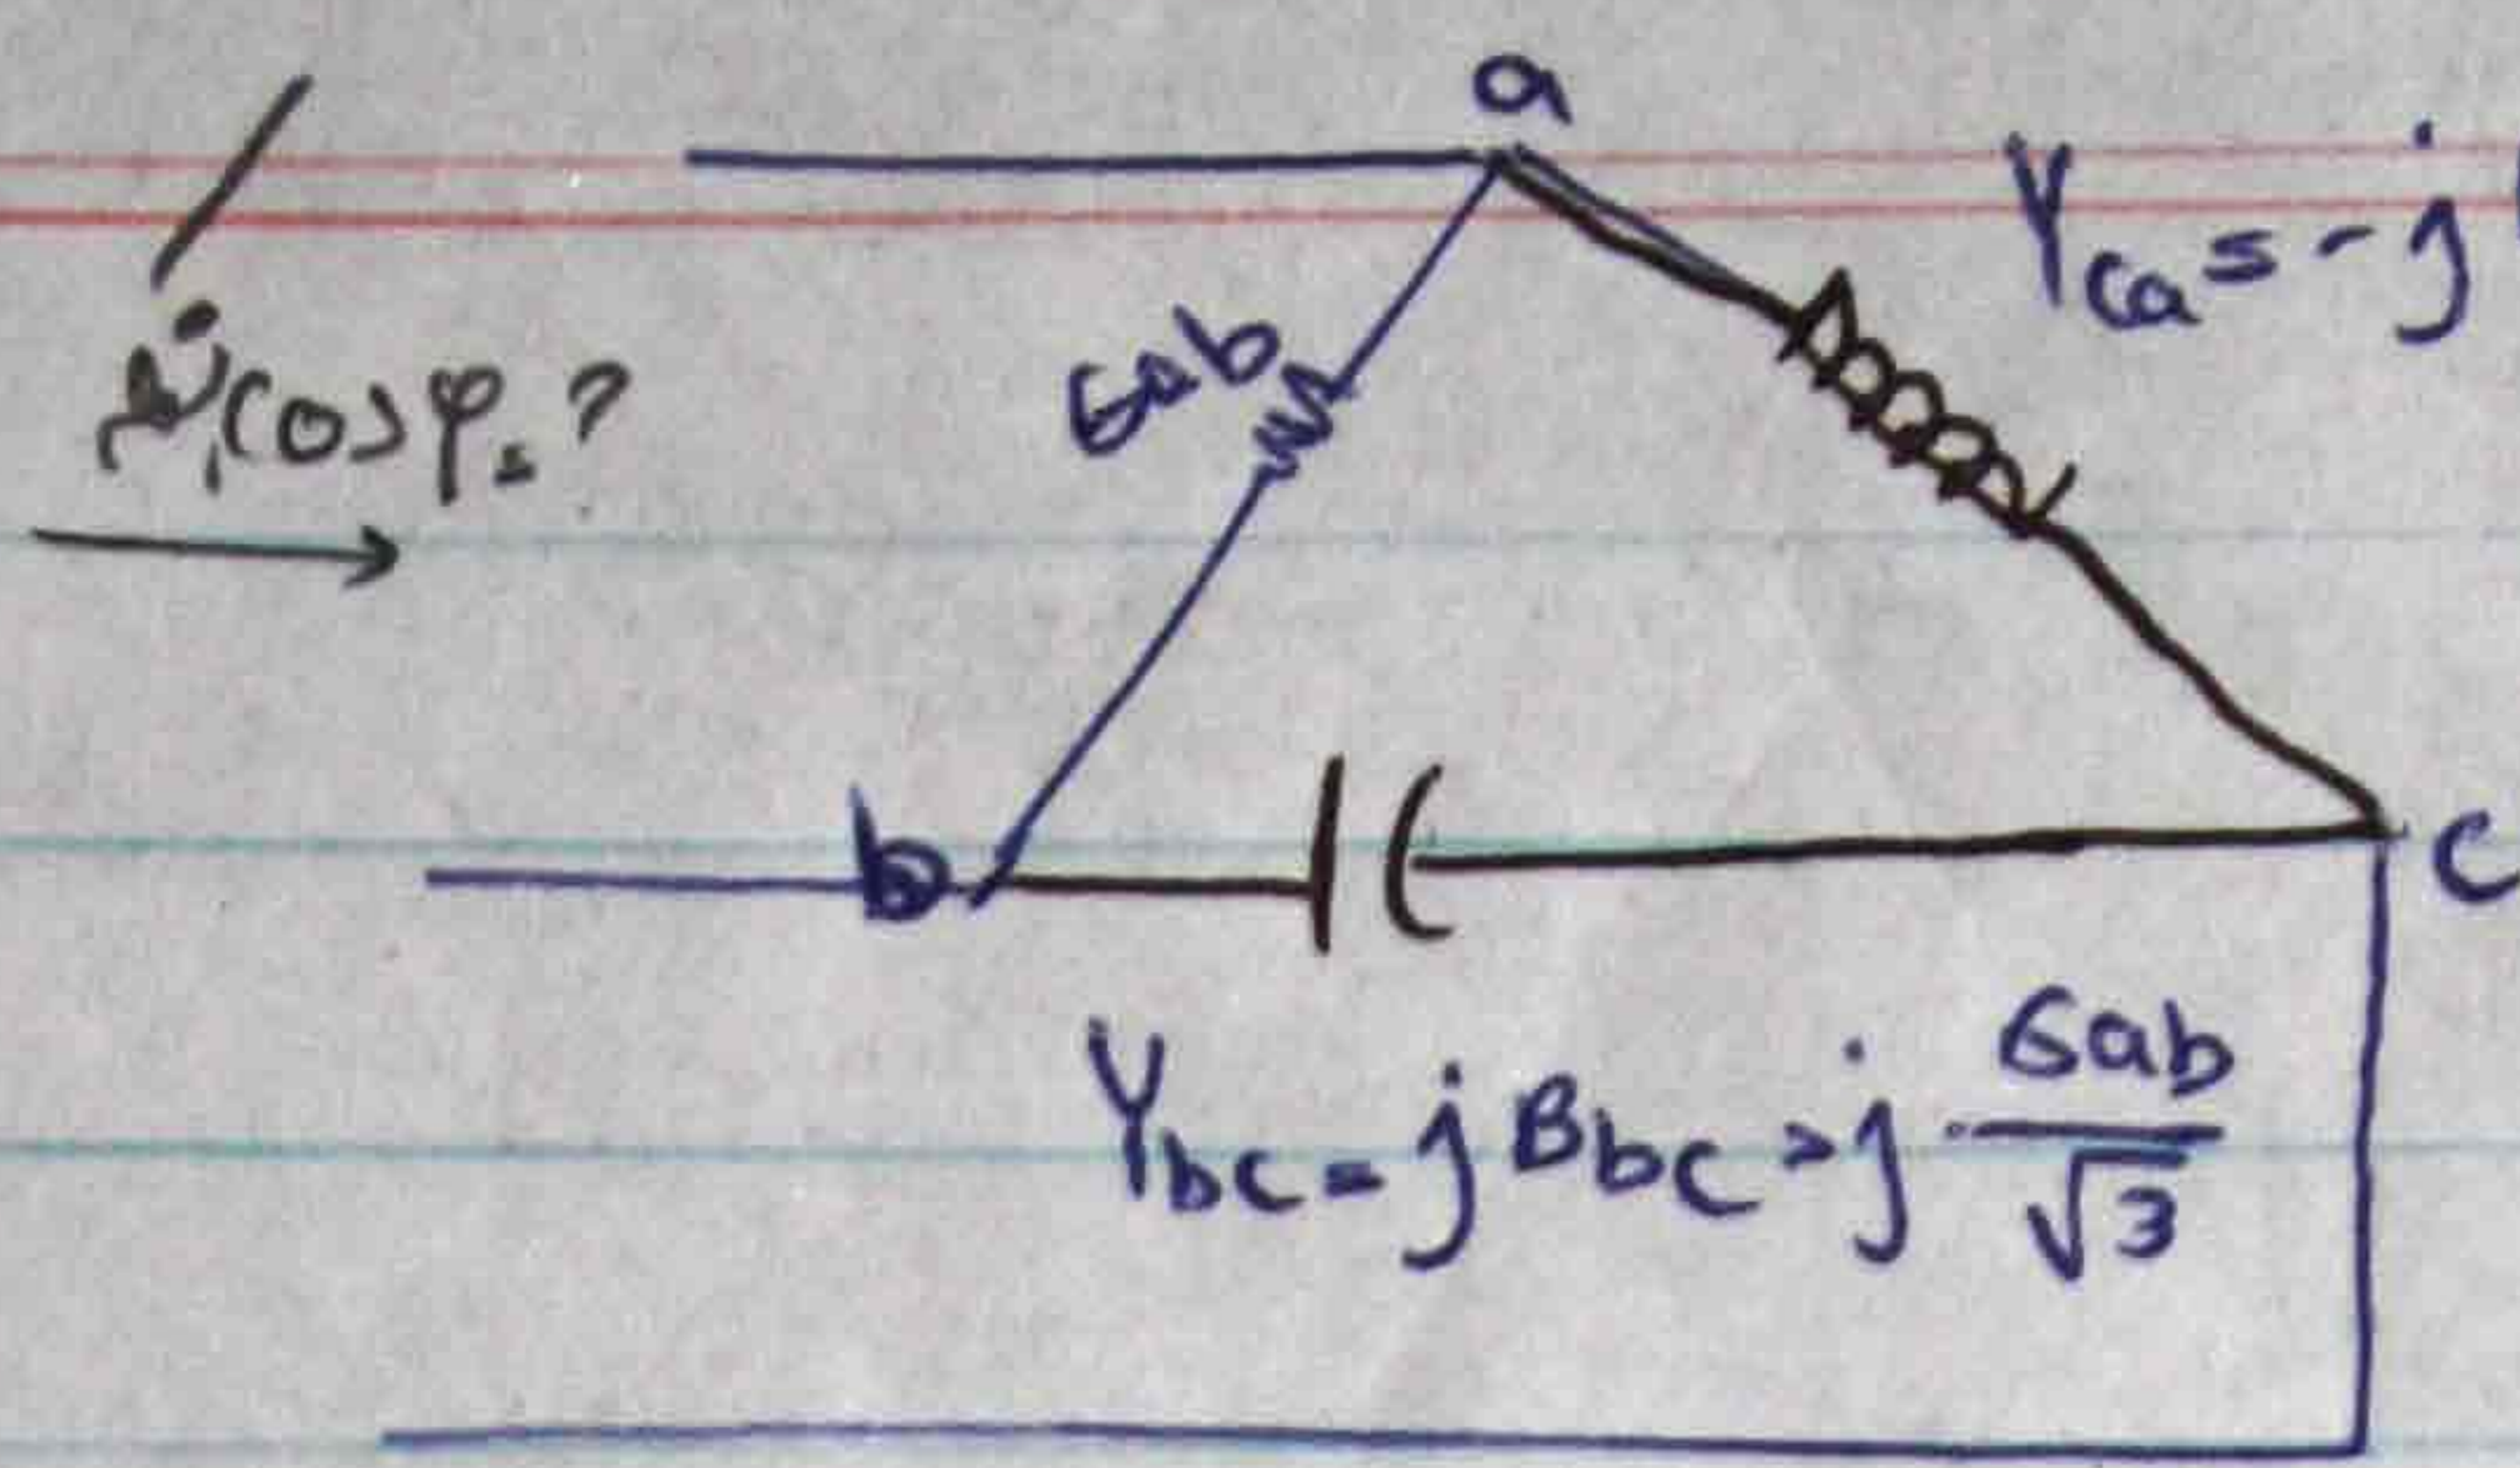 a
Yca = -j
Gab
cosφ = ?
b
c
Ybc = jBbc = j Gab/√3